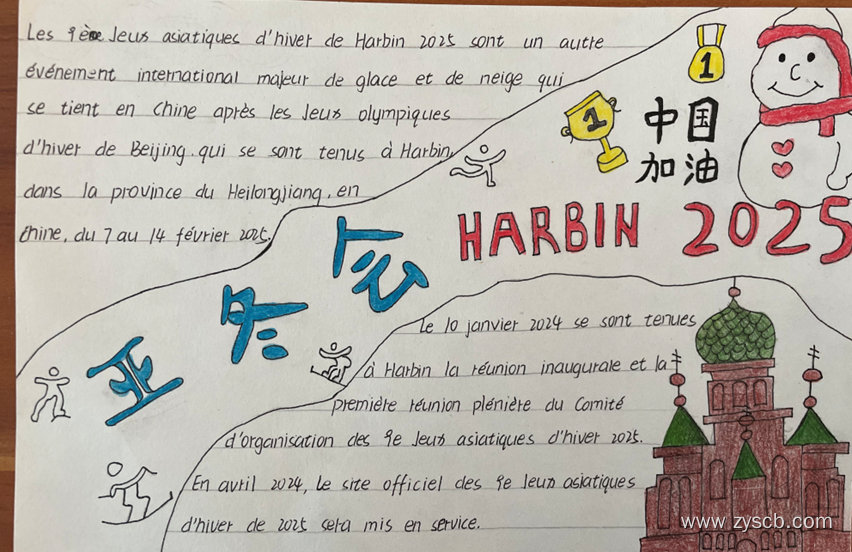 Les 9è Jeux asiatiques d'hiver de Harbin 2025 sont un autre
événement international majeur de glace et de neige qui
se tient en Chine après les Jeux olympiques
d'hiver de Beijing. qui se sont tenus à Harbin,
dans la province du Heilongjiang, en
Chine, du 7 au 14 février 2025.
1
1
中国
加油
HARBIN 2025
亚冬会
Le 10 janvier 2024 se sont tenues
à Harbin la réunion inaugurale et la
première réunion plénière du Comité
d'organisation des 9e Jeux asiatiques d'hiver 2025.
En avril 2024, Le site officiel des 9e Jeux asiatiques
d'hiver de 2025 sera mis en service.
www.zyscb.com